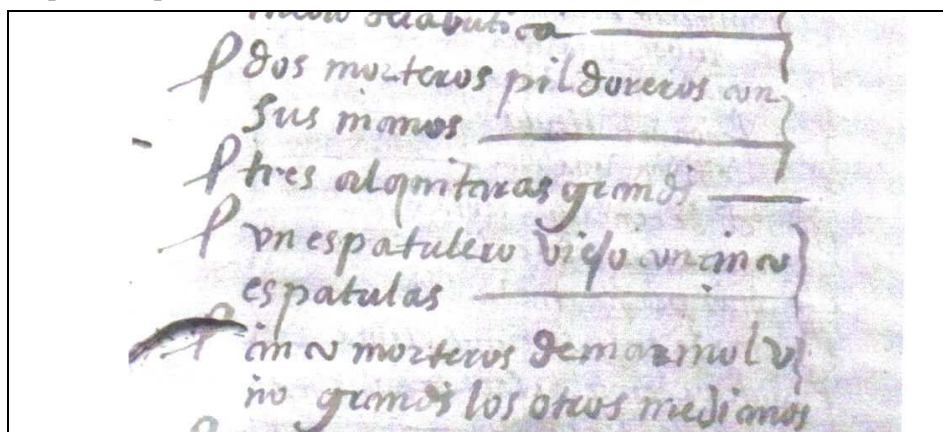 dos morteros pildoreros con
sus manos
tres alquitaras grandes
vn espatulero viejo con cinco
espatulas
cinco morteros de marmol v
no grande los otros medianos